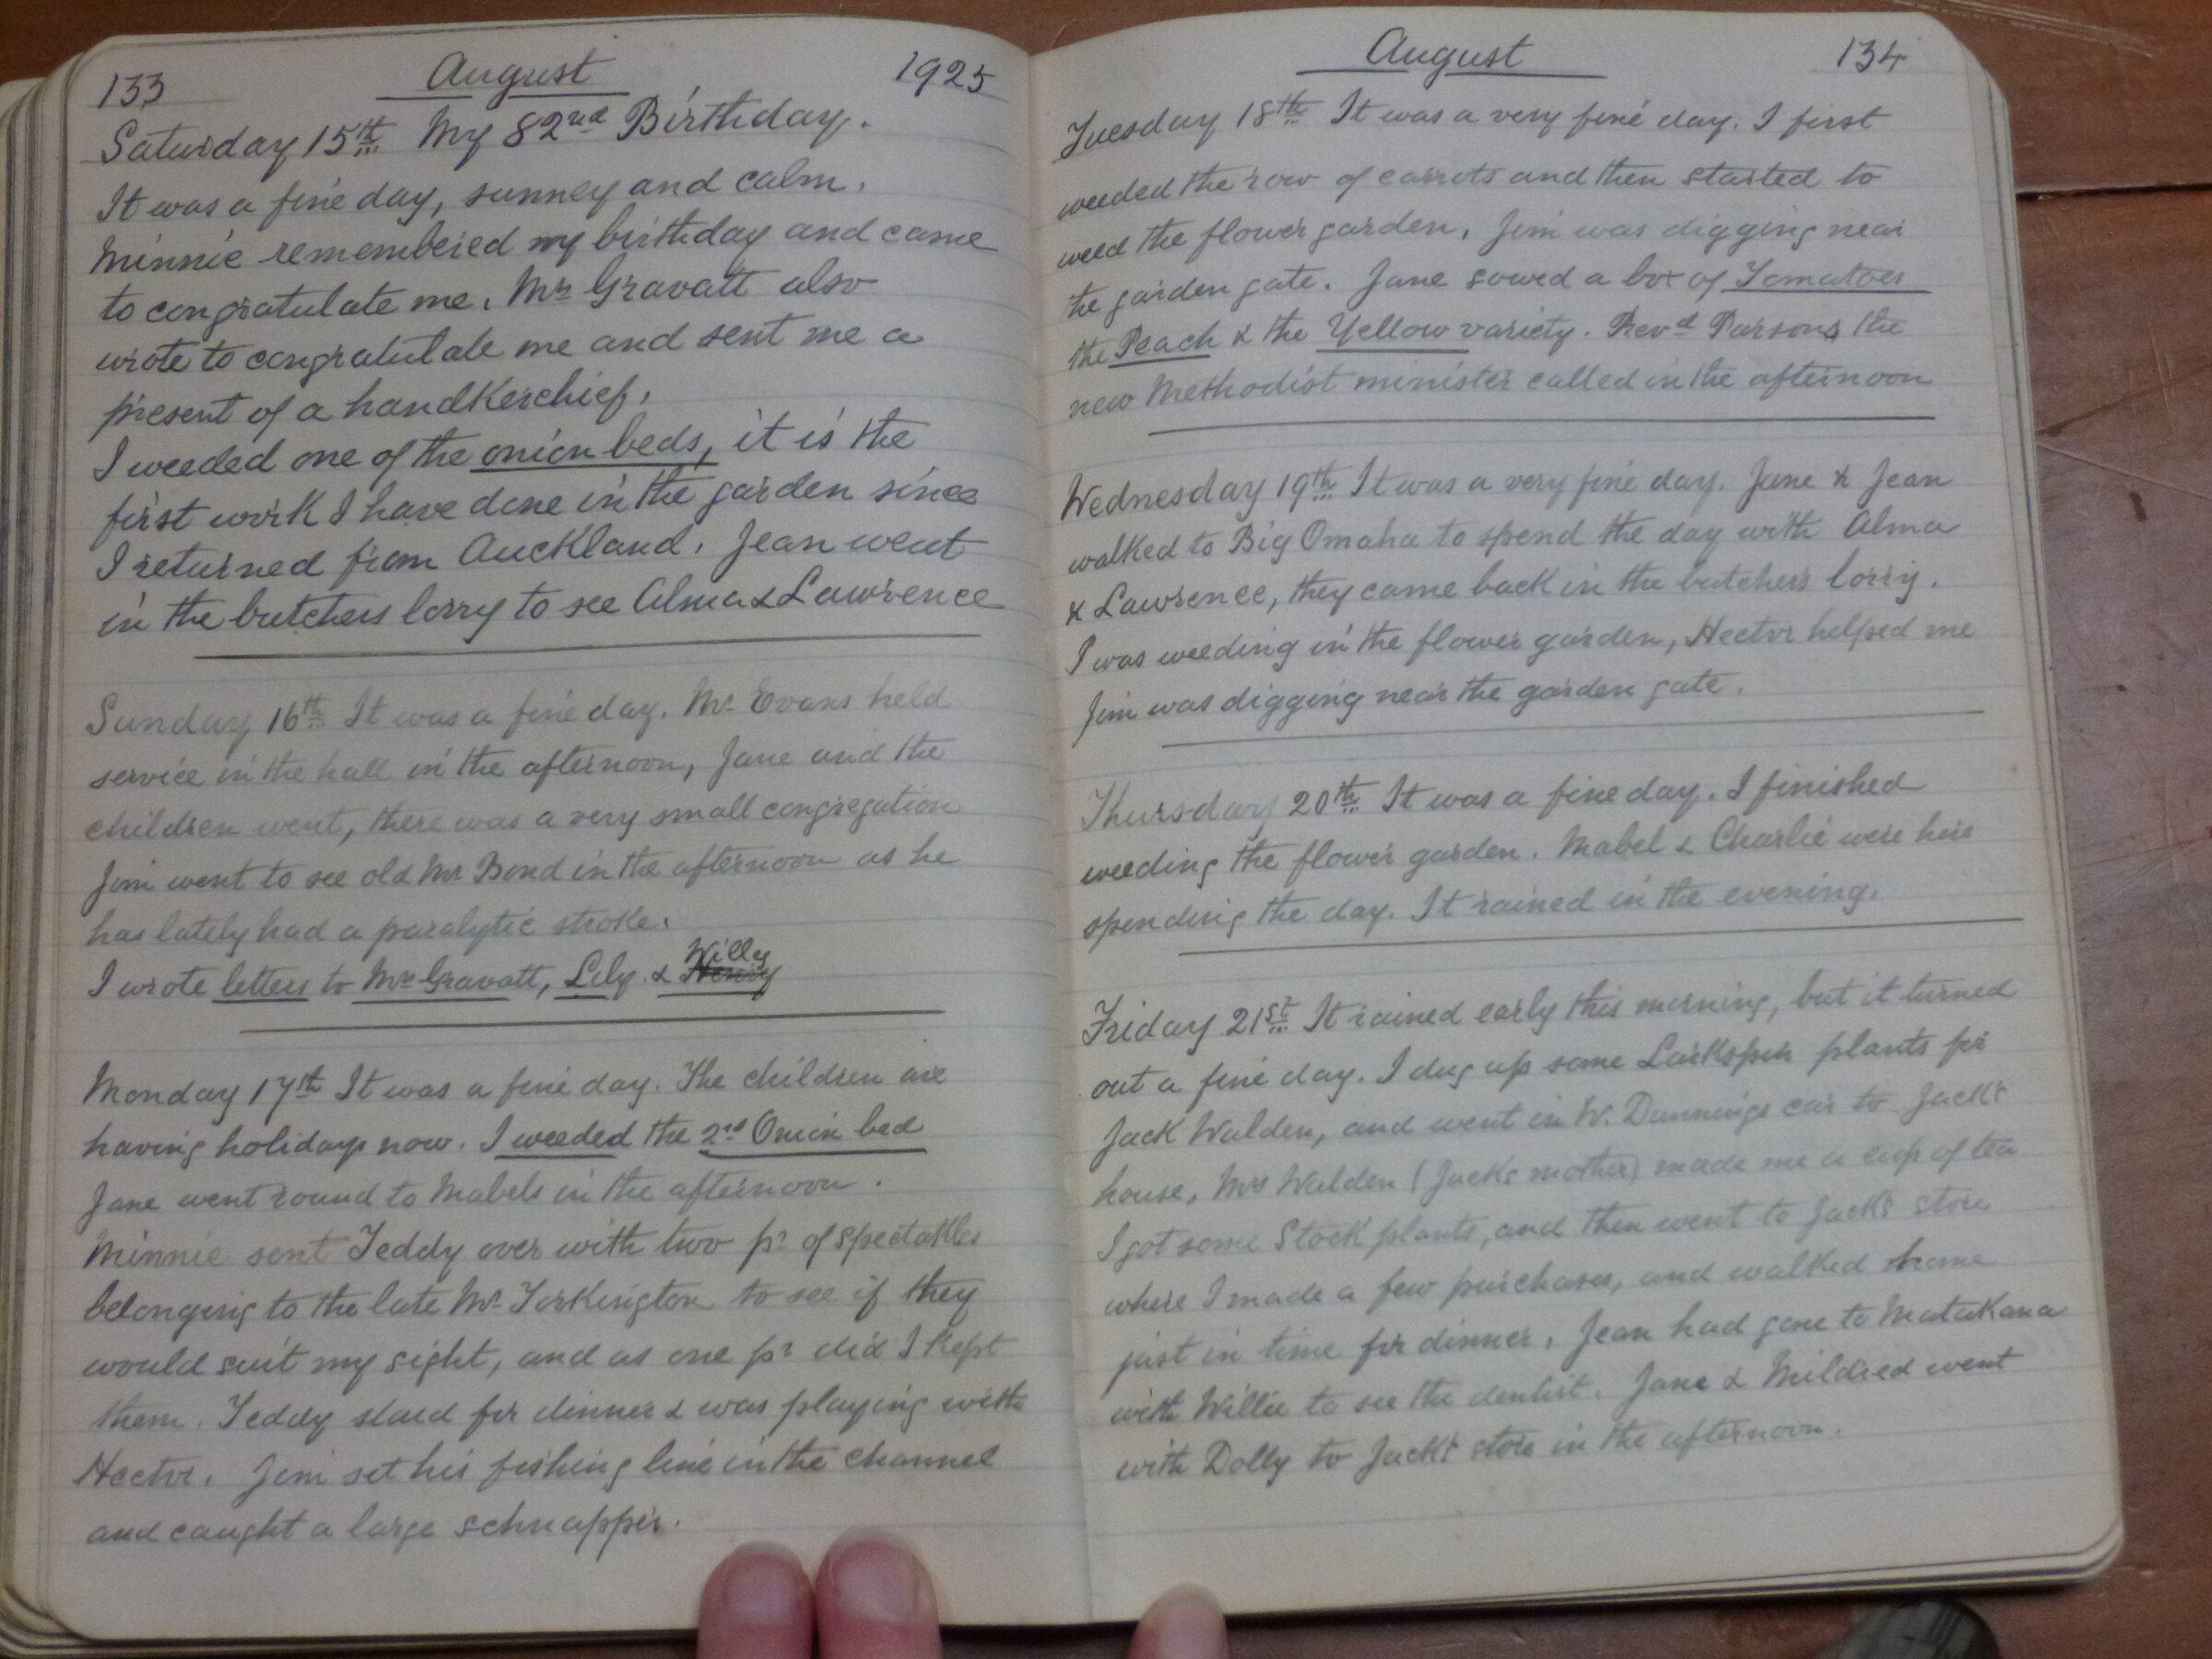 133 August 1925
Saturday 15th My 82nd Birthday.
It was a fine day, sunney and calm.
Minnie remembered my birthday and came
to congratulate me. Mrs Gravatt also
wrote to congratulate me and sent me a
present of a handkerchief.
I weeded one of the onion beds, it is the
first work I have done in the garden since
I returned from Auckland. Jean went
in the butchers lorry to see Alma & Lawrence
Sunday 16th It was a fine day. Mr Evans held
service in the hall in the afternoon, Jane and the
children went, there was a very small congregation
Jim went to see old Mr Bond in the afternoon as he
has lately had a paralytic stroke.
Willy
I wrote letters to Mrs Gravatt, Lily & Henry
Monday 17th It was a fine day. The children are
having holidays now. I weeded the 2nd Onion bed
Jane went round to Mabels in the afternoon.
Minnie sent Teddy over with two pr of spectakles
belonging to the late Mr Torkington to see if they
would suit my sight, and as one pr did I kept
them. Teddy staid for dinner & was playing with
Hector. Jim set his fishing line in the channel
and caught a large schnapper.
August 134
Tuesday 18th It was a very fine day. I first
weeded the row of carrots and then started to
weed the flower garden. Jim was digging near
the garden gate. Jane sowed a box of Tomatoes
the Peach & the Yellow variety. Revd Parsons the
new Methodist minister called in the afternoon
Wednesday 19th It was a very fine day. Jane & Jean
walked to Big Omaha to spend the day with Alma
& Lawrence, they came back in the butchers lorry.
I was weeding in the flower garden, Hector helped me
Jim was digging near the garden gate.
Thursday 20th It was a fine day. I finished
weeding the flower garden. Mabel & Charlie were here
spending the day. It rained in the evening.
Friday 21st It rained early this morning, but it turned
out a fine day. I dug up some Larkspur plants for
Jack Walden, and went in W. Dunnings car to Jack's
house, Mrs Walden (Jacks mother) made me a cup of tea
I got some Stock plants, and then went to Jack's store
where I made a few purchases, and walked home
just in time for dinner. Jean had gone to Matakana
with Willie to see the dentist. Jane & Mildred went
with Dolly to Jack's store in the afternoon.